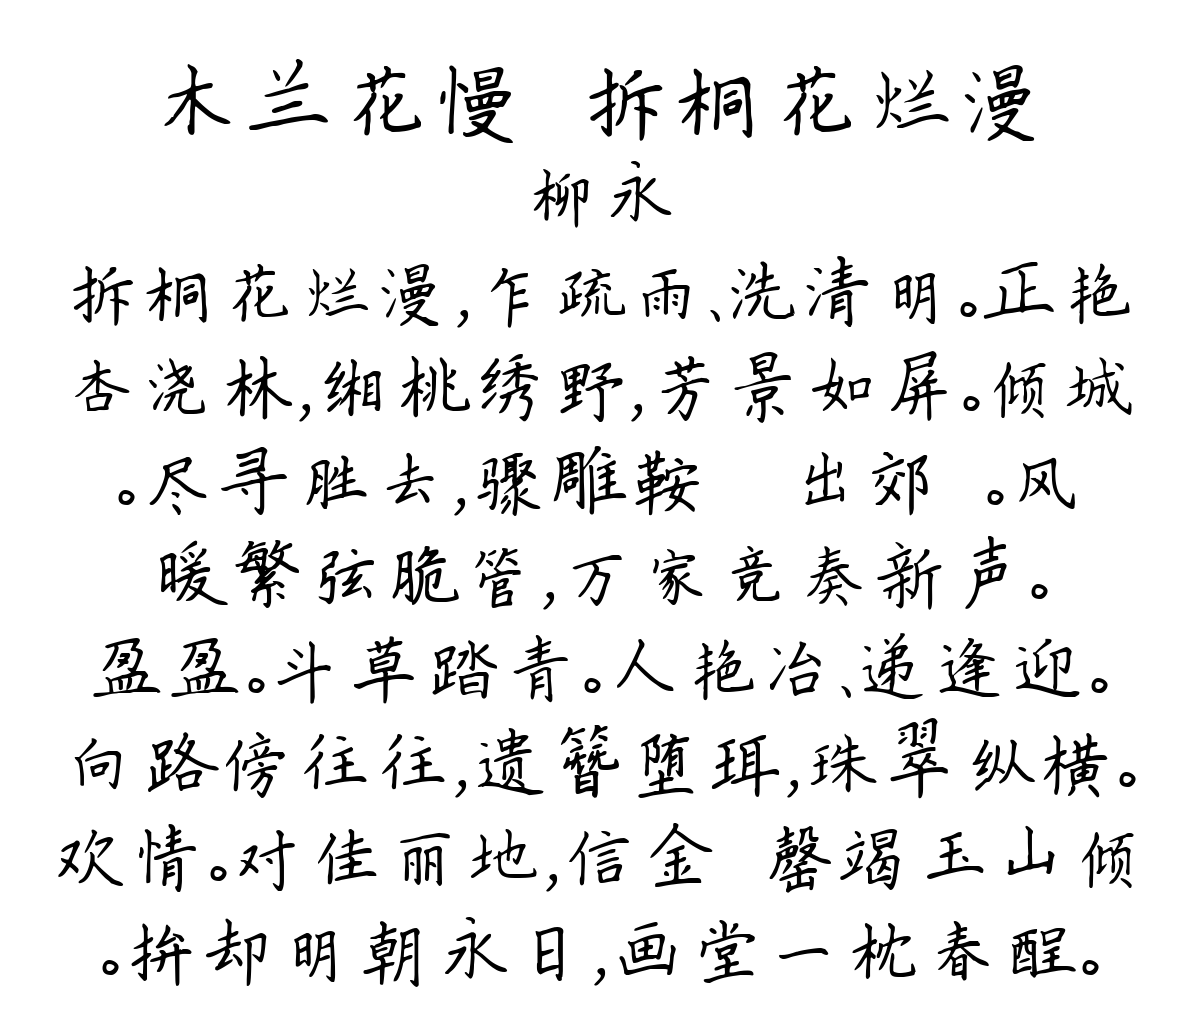 木兰花慢 拆桐花烂漫
柳永
拆桐花烂漫,乍疏雨、洗清明。正艳
杏浇林,缃桃绣野,芳景如屏。倾城
。尽寻胜去,骤雕鞍 出郊 。风
暖繁弦脆管,万家竞奏新声。
盈盈。斗草踏青。人艳冶、递逢迎。
向路傍往往,遗簪堕珥,珠翠纵横。
欢情。对佳丽地,信金 罄竭玉山倾
。拚却明朝永日,画堂一枕春酲。